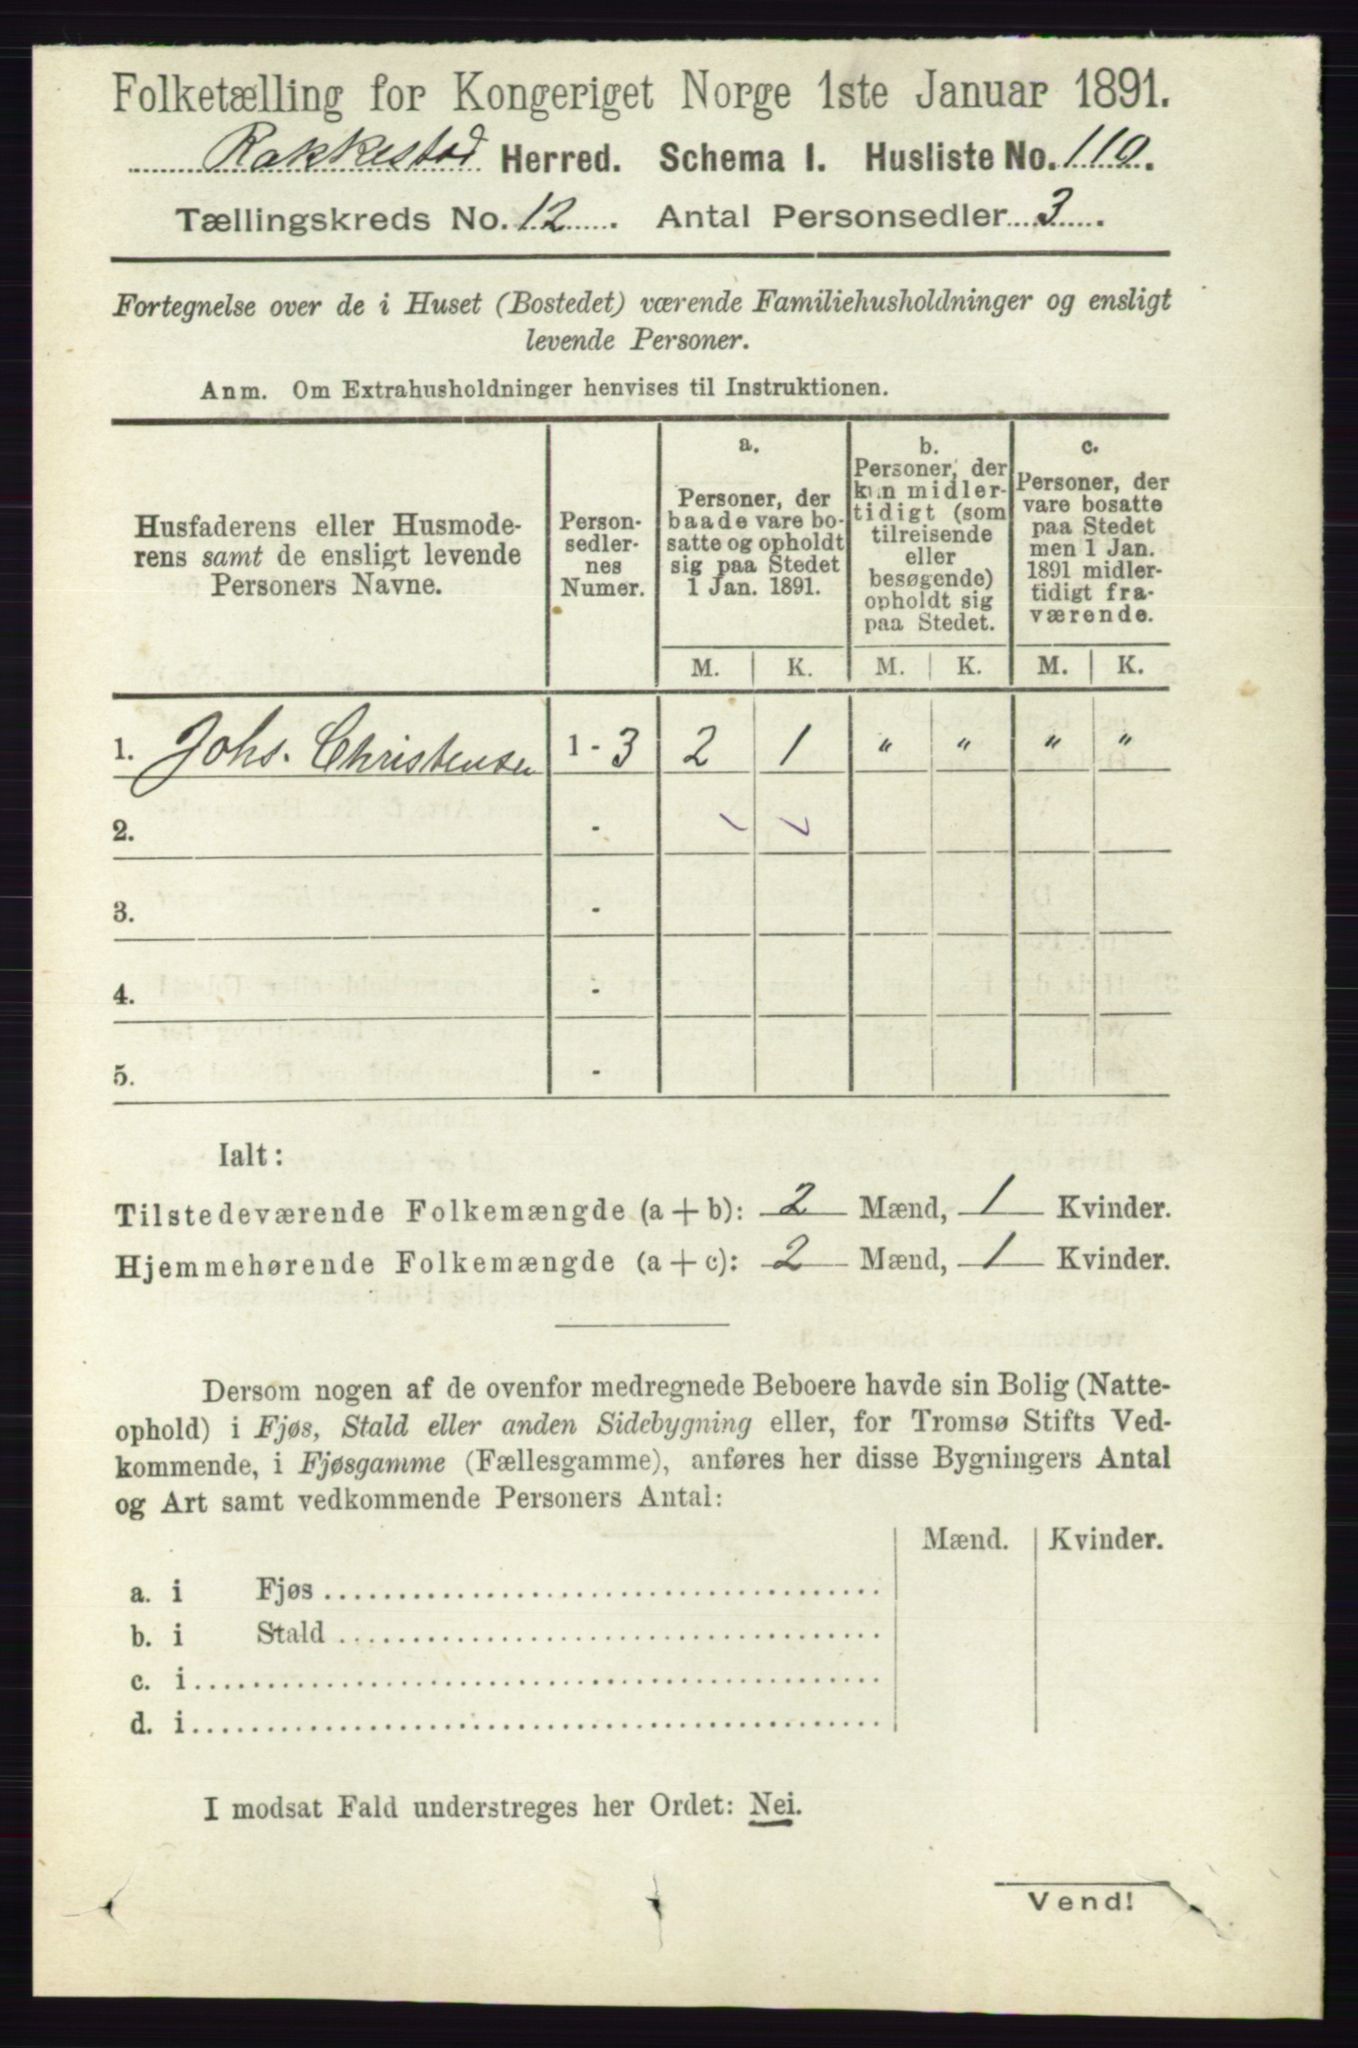 Folketælling for Kongeriget Norge 1ste Januar 1891.
Rakkestad Herred. Schema I. Husliste No. 110.
Tællingskreds No. 12. Antal Personsedler 3.
Fortegnelse over de i Huset (Bostedet) værende Familiehusholdninger og ensligt
levende Personer.
Anm. Om Extrahusholdninger henvises til Instruktionen.
Husfaderens eller Husmode-
rens samt de ensligt levende
Personers Navne.
Person-
sedler-
nes
Numer.
a.
Personer, der
baade vare bo-
satte og opholdt
sig paa Stedet
1 Jan. 1891.
b.
Personer, der
kun midler-
tidigt (som
tilreisende
eller
besøgende)
opholdt sig
paa Stedet.
c.
Personer, der
vare bosatte
paa Stedet
men 1 Jan.
1891 midler-
tidigt fra-
værende.
M. K. M. K. M. K.
1. Johs. Christensen 1 - 3 2 1 " " " "
2. -
3. -
4. -
5. -
Ialt:
Tilstedeværende Folkemængde (a + b): 2 Mænd, 1 Kvinder.
Hjemmehørende Folkemængde (a + c): 2 Mænd, 1 Kvinder.
Dersom nogen af de ovenfor medregnede Beboere havde sin Bolig (Natte-
ophold) i Fjøs, Stald eller anden Sidebygning eller, for Tromsø Stifts Ved-
kommende, i Fjøsgamme (Fællesgamme), anføres her disse Bygningers Antal
og Art samt vedkommende Personers Antal:
Mænd. Kvinder.
a. i Fjøs
b. i Stald
c. i
d. i
I modsat Fald understreges her Ordet: Nei.
Vend!